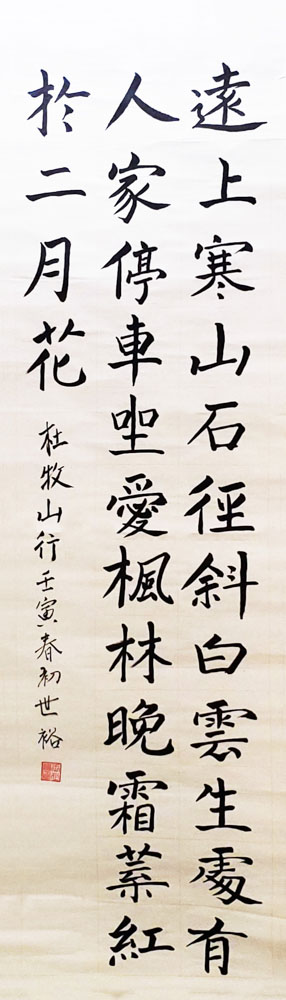 遠上寒山石徑斜白雲生處有
人家停車坐愛楓林晚霜葉紅
於二月花
杜牧山行壬寅春初世裕